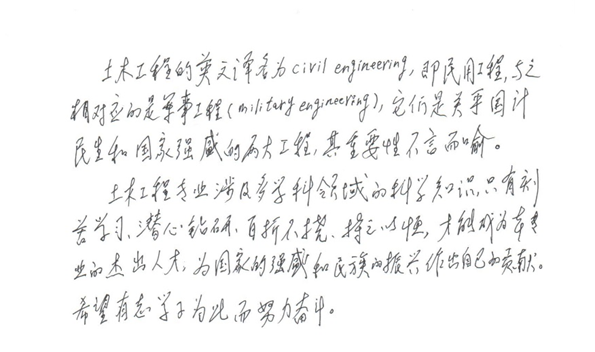 土木工程的英文译名为civil engineering,即民用工程,与之
相对应的是军事工程(military engineering),它们是关乎国计
民生和国家强盛的两大工程,其重要性不言而喻。
土木工程专业涉及多学科领域的科学知识,只有刻
苦学习、潜心钻研、百折不挠、持之以恒,才能成为本专
业的杰出人才,为国家的强盛和民族的振兴作出自己的贡献。
希望有志学子为此而努力奋斗。